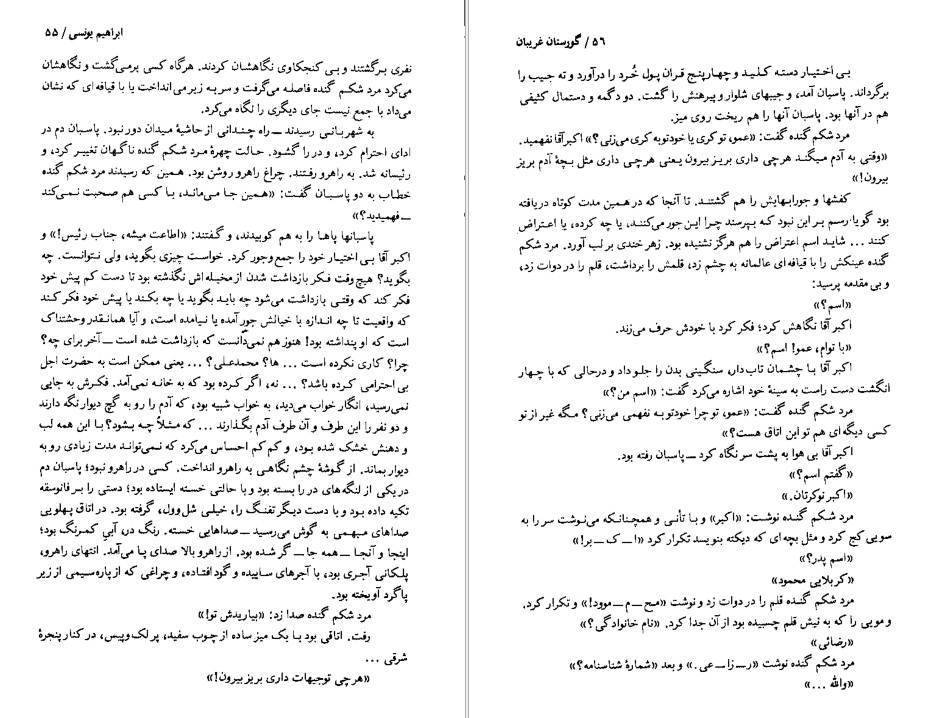 ابراهیم یونسی / ۵۵
نفری برگشتند و بی کنجکاوی نگاهشان کردند. هرگاه کسی برمی‌گشت و نگاهشان
می‌کرد مرد شکم گنده فاصله می‌گرفت و سر به زیر می انداخت یا با قیافه ای که نشان
می‌داد با جمع نیست جای دیگری را نگاه می‌کرد.
به شهربانی رسیدند ــ راه چندانی از حاشیهٔ میدان دور نبود. پاسبان دم در
ادای احترام کرد، و در را گشود. حالت چهرهٔ مرد شکم گنده ناگهان تغییر کرد، و
رئیسانه شد. به راهرو رفتند. چراغ راهرو روشن بود. همین که رسیدند مرد شکم گنده
خطاب به دو پاسبان گفت: «همین جا می‌ماند، با کسی هم صحبت نمی‌کند
ــ فهمیدید؟»
پاسبانها پاها را به هم کوبیدند، و گفتند: «اطاعت میشه، جناب رئیس!» و
اکبر آقا بی اختیار خود را جمع وجور کرد. خواست چیزی بگوید، ولی نتوانست. چه
بگوید؟ هیچ وقت فکر بازداشت شدن از مخیله‌اش نگذشته بود تا دست کم پیش خود
فکر کند که وقتی بازداشت می‌شود چه باید بگوید یا چه بکند یا پیش خود فکر کند
که واقعیت تا چه اندازه با خیالش جور آمده یا نیامده است، و آیا همانقدر وحشتناک
است که او پنداشته بود! هنوز هم نمی‌دانست که بازداشت شده است ــ آخر برای چه؟
چرا؟ کاری نکرده است ... ها؟ محمدعلی؟ ... یعنی ممکن است به حضرت اجل
بی احترامی کرده باشد؟ ... نه، اگر کرده بود که به خانه نمی‌آمد. فکرش به جایی
نمی‌رسید، انگار خواب می‌دید، به خواب شبیه بود، که آدم را رو به گچ دیوار نگه دارند
و دو نفر را این طرف و آن طرف آدم بگذارند ... که مثلاً چه بشود؟ با این همه لب
و دهنش خشک شده بود، و کم کم احساس می‌کرد که نمی‌تواند مدت زیادی رو به
دیوار بماند. از گوشهٔ چشم نگاهی به راهرو انداخت. کسی در راهرو نبود؛ پاسبان دم
در یکی از لنگه‌های در را بسته بود و با حالتی خسته ایستاده بود؛ دستی را بر فانوسقه
تکیه داده بود و با دست دیگر تفنگ را، خیلی شل وول، گرفته بود. در اتاق پهلویی
صداهای مبهمی به گوش می‌رسید ــ صداهایی خسته. رنگ در، آبیِ کمرنگ بود؛
اینجا و آنجا ــ همه جا ــ گر شده بود. از راهرو بالا صدای پا می‌آمد. انتهای راهرو،
پلکانی آجری بود، با آجرهای ساییده و گود افتاده، و چراغی که از پاره سیمی از زیر
پاگرد آویخته بود.
مرد شکم گنده صدا زد: «بیاریدش تو!»
رفت. اتاقی بود با یک میز ساده از چوب سفید، پر لک وپیس، در کنار پنجرهٔ
شرقی ...
«هرچی توجیهات داری بریز بیرون!»
۵۶ / گورستان غریبان
بی اختیار دسته کلید و چهارپنج قران پول خُرد را درآورد و ته جیب را
برگرداند. پاسبان آمد، و جیبهای شلوار و پیرهنش را گشت. دو دگمه و دستمال کثیفی
هم در آنها بود. پاسبان آنها را هم ریخت روی میز.
مرد شکم گنده گفت: «عمو، تو کری یا خودتو به کری می‌زنی؟» اکبرآقا نفهمید.
«وقتی به آدم میگند هرچی داری بریز بیرون یعنی هرچی داری مثل بچهٔ آدم بریز
بیرون!»
کفشها و جورابهایش را هم گشتند. تا آنجا که در همین مدت کوتاه دریافته
بود گویا رسم بر این نبود که بپرسند چرا این جور می‌کنند، یا چه کرده، یا اعتراض
کنند ... شاید اسم اعتراض را هم هرگز نشنیده بود. زهر خندی بر لب آورد. مرد شکم
گنده عینکش را با قیافه‌ای عالمانه به چشم زد، قلمش را برداشت، قلم را در دوات زد،
و بی مقدمه پرسید:
«اسم؟»
اکبر آقا نگاهش کرد؛ فکر کرد با خودش حرف می‌زند.
«با توام، عمو! اسم؟»
اکبر آقا با چشمان تاب‌دار، سنگینی بدن را جلو داد و درحالی که با چهار
انگشت دست راست به سینهٔ خود اشاره می‌کرد گفت: «اسم من؟»
مرد شکم گنده گفت: «عمو، تو چرا خودتو به نفهمی می‌زنی؟ مگه غیر از تو
کسی دیگه‌ای هم تو این اتاق هست؟»
اکبر آقا بی هوا به پشت سر نگاه کرد ــ پاسبان رفته بود.
«گفتم اسم؟»
«اکبر نوکرتان.»
مرد شکم گنده نوشت: «اکبر» و با تأنی و همچنانکه می‌نوشت سر را به
سویی کج کرد و مثل بچه ای که دیکته بنویسد تکرار کرد «ا ــ ک ــ بر!»
«اسم پدر؟»
«کربلایی محمود»
مرد شکم گنده قلم را در دوات زد و نوشت «مـح ــ م ــ موود!» و تکرار کرد.
و مویی را که به نیش قلم چسبیده بود از آن جدا کرد. «نام خانوادگی؟»
«رضائی»
مرد شکم گنده نوشت «ر ــ زا ــ عی.» و بعد «شمارهٔ شناسنامه؟»
«والله ...»